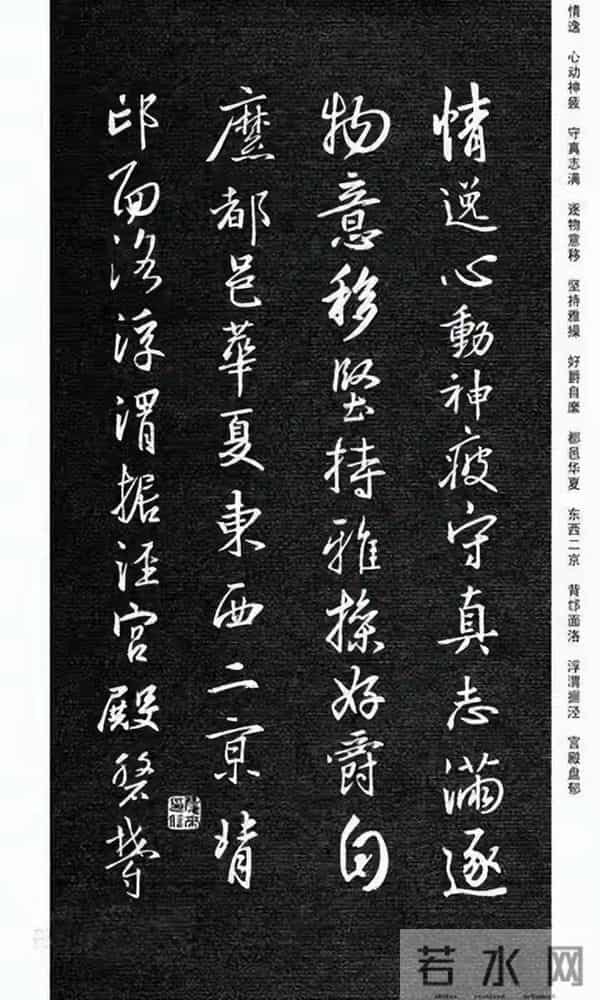 情逸 心动神疲 守真志满 逐物意移 坚持雅操 好爵自縻 都邑华夏 东西二京 背邙面洛 浮渭据泾 宫殿盘郁
情逸心動神疲守真志滿逐
物意移堅持雅操好爵自
縻都邑華夏東西二京背
邙面洛浮渭据涇宮殿磐鬱
若水网